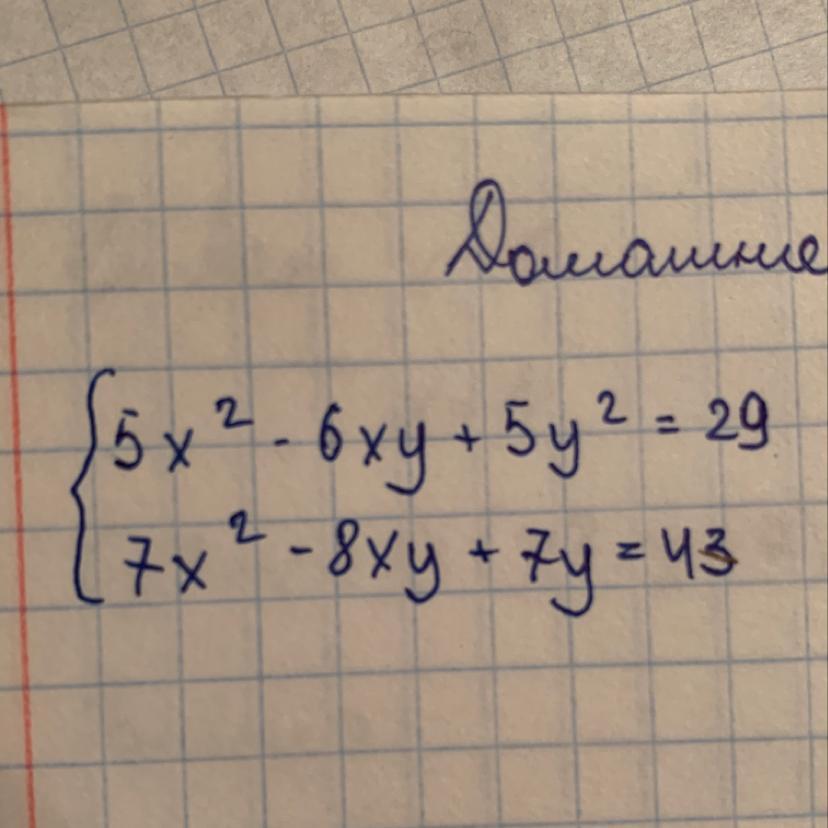 Домашние
5x² - 6xy + 5y² = 29
7x² - 8xy + 7y = 43